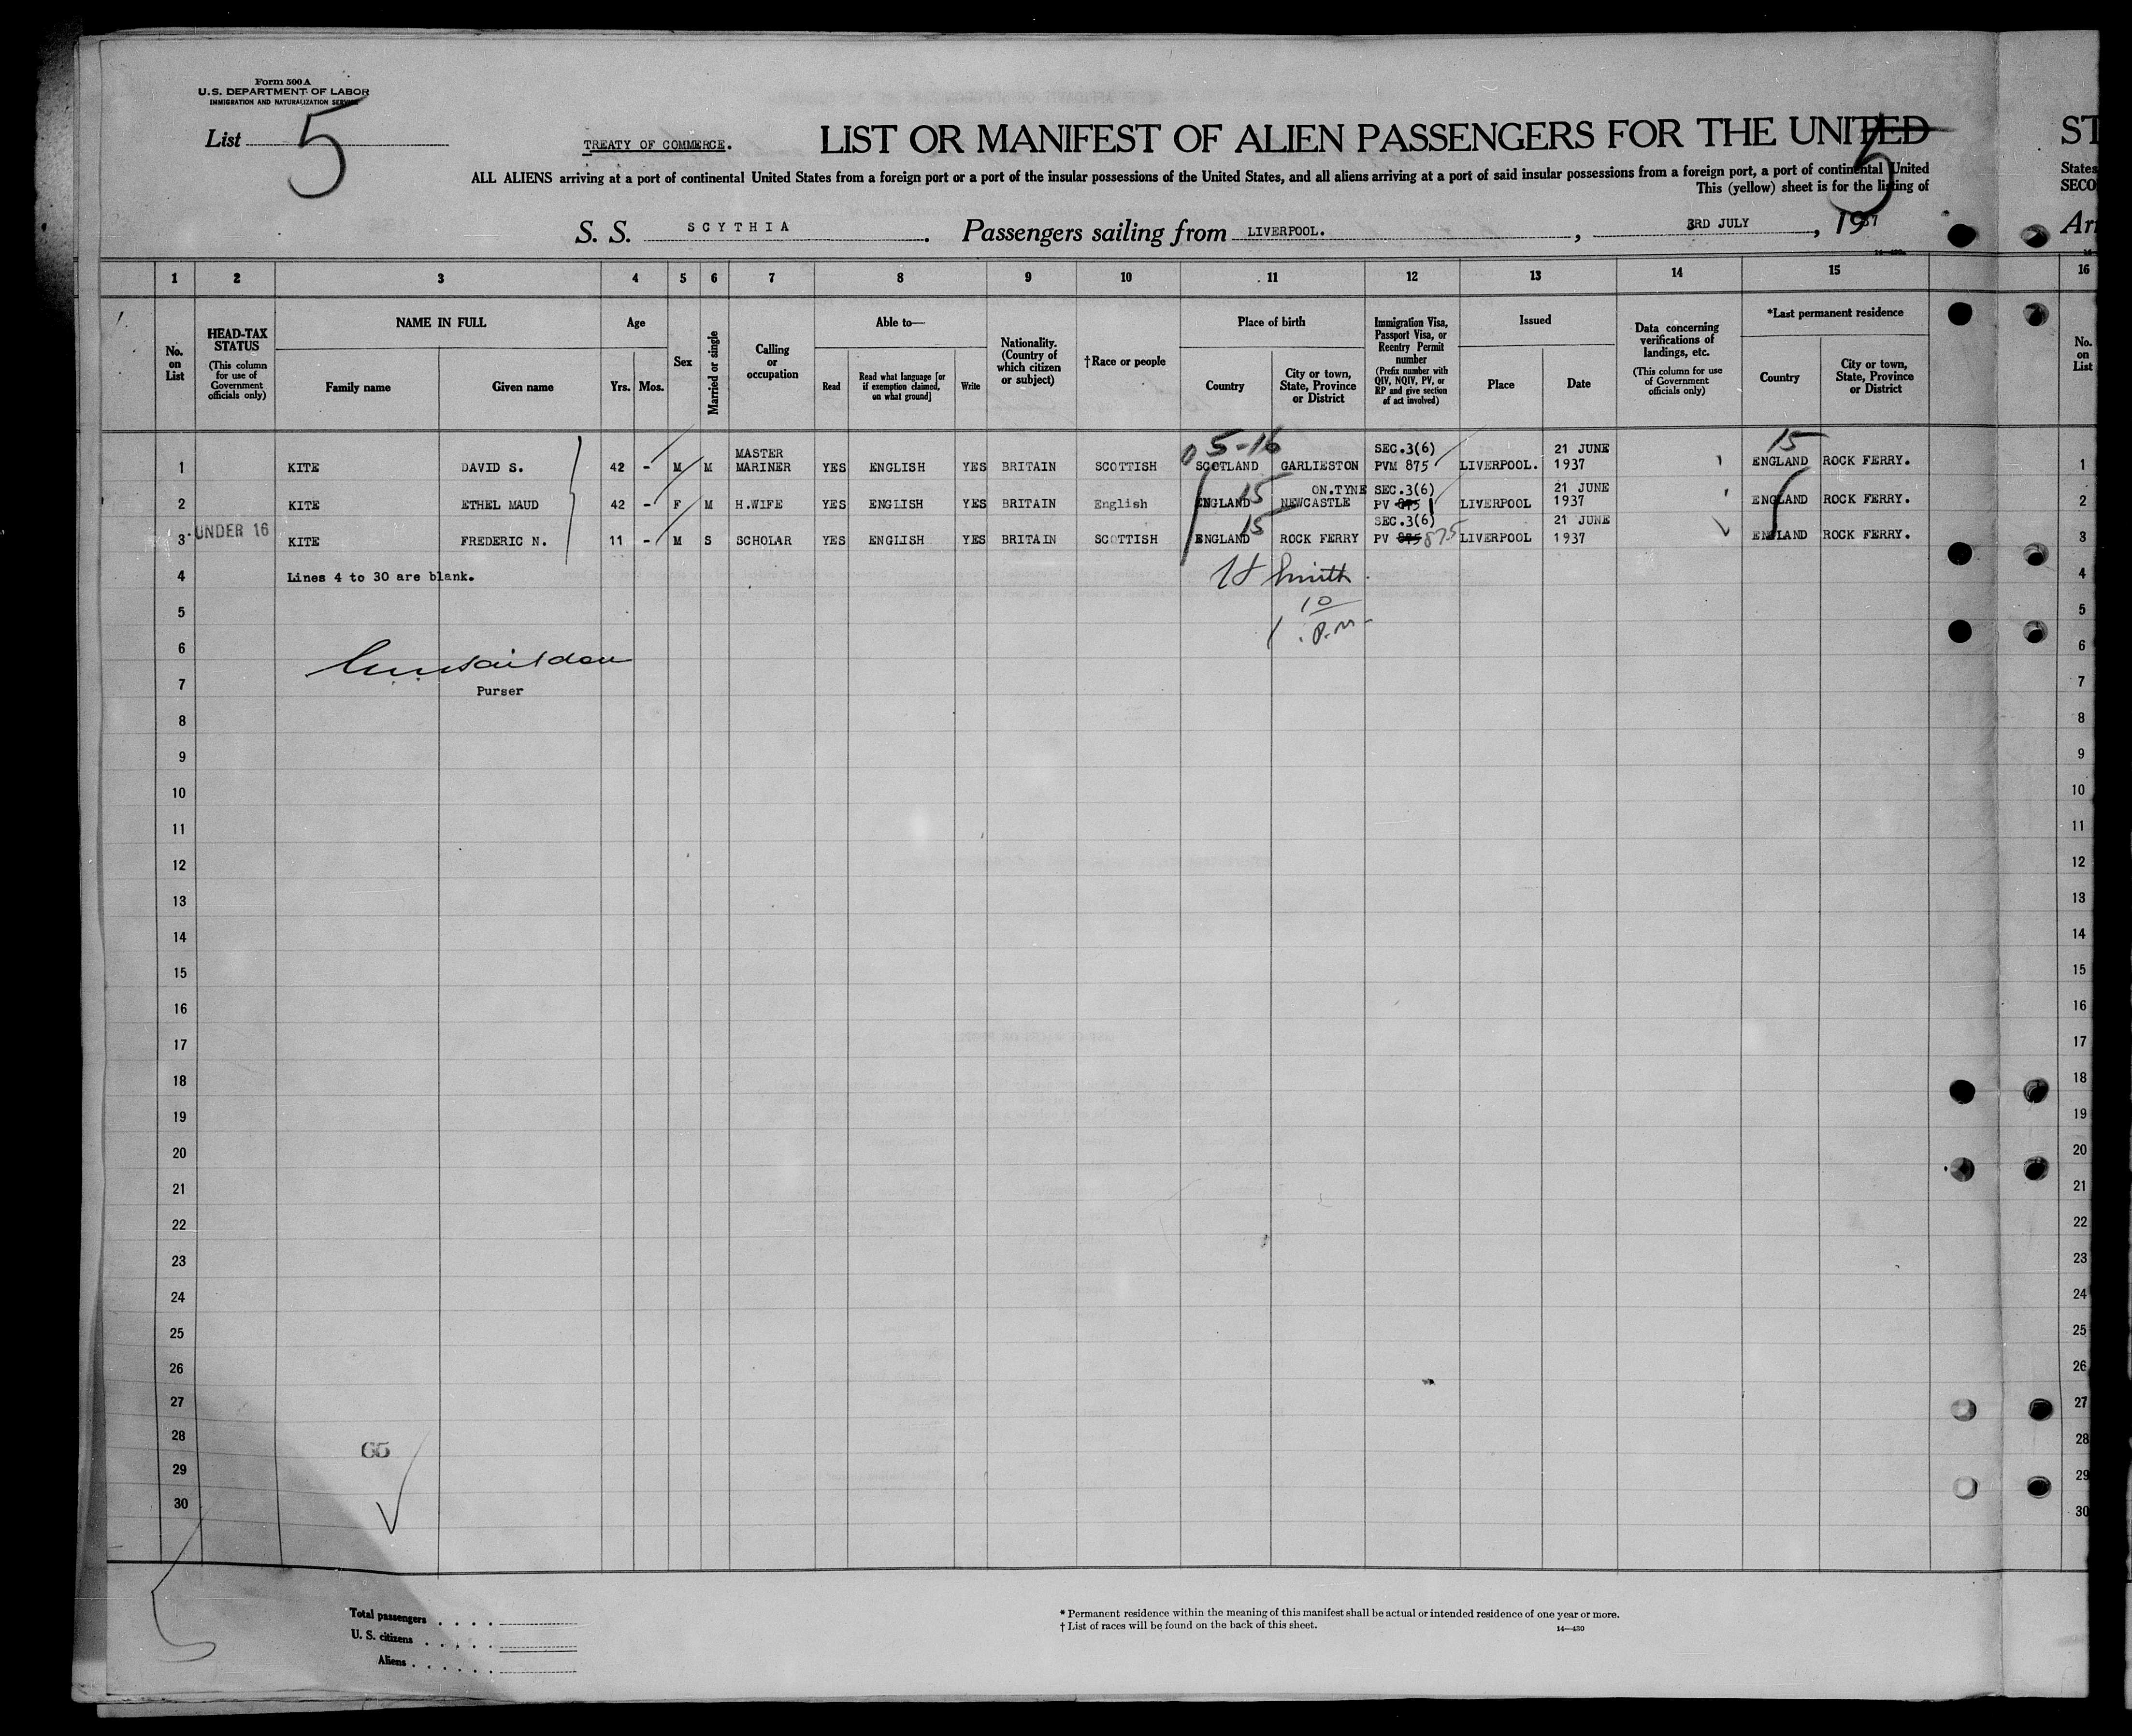 Form 500 A
U. S. DEPARTMENT OF LABOR
IMMIGRATION AND NATURALIZATION SERVICE
List 5
TREATY OF COMMERCE.
LIST OR MANIFEST OF ALIEN PASSENGERS FOR THE UNITED
ST
5
ALL ALIENS arriving at a port of continental United States from a foreign port or a port of the insular possessions of the United States, and all aliens arriving at a port of said insular possessions from a foreign port, a port of continental United
States
This (yellow) sheet is for the listing of
SECO
S. S. SCYTHIA. Passengers sailing from LIVERPOOL. , 3RD JULY , 1937
Arr
1 2 3 4 5 6 7 8 9 10 11 12 13 14 15 16
No. on List
HEAD-TAX STATUS
(This column for use of Government officials only)
NAME IN FULL
Family name
Given name
Age
Yrs. Mos.
Sex
Married or single
Calling or occupation
Able to—
Read
Read what language [or if exemption claimed, on what ground]
Write
Nationality. (Country of which citizen or subject)
†Race or people
Place of birth
Country
City or town, State, Province or District
Immigration Visa, Passport Visa, or Reentry Permit number
(Prefix number with QIV, NQIV, PV, or RP and give section of act involved)
Issued
Place
Date
Data concerning verifications of landings, etc.
(This column for use of Government officials only)
*Last permanent residence
Country
City or town, State, Province or District
No. on List
05-16
15
1 KITE DAVID S. 42 - M M MASTER MARINER YES ENGLISH YES BRITAIN SCOTTISH SCOTLAND GARLIESTON SEC.3(6) PVM 875 LIVERPOOL. 21 JUNE 1937 ENGLAND ROCK FERRY. 1
15
2 KITE ETHEL MAUD 42 - F M H.WIFE YES ENGLISH YES BRITAIN English ENGLAND NEWCASTLE ON.TYNE SEC.3(6) PV 875 LIVERPOOL 21 JUNE 1937 ENGLAND ROCK FERRY. 2
15
3 UNDER 16 KITE FREDERIC N. 11 - M S SCHOLAR YES ENGLISH YES BRITAIN SCOTTISH ENGLAND ROCK FERRY SEC.3(6) PV 875 875 LIVERPOOL 21 JUNE 1937 ENGLAND ROCK FERRY. 3
4 Lines 4 to 30 are blank. Smith 4
5 10 5
P.M.
6 6
7 Purser 7
8 8
9 9
10 10
11 11
12 12
13 13
14 14
15 15
16 16
17 17
18 18
19 19
20 20
21 21
22 22
23 23
24 24
25 25
26 26
27 27
28 65 28
29 29
30 30
Total passengers . . . .
U. S. citizens . . . . .
Aliens . . . . . .
* Permanent residence within the meaning of this manifest shall be actual or intended residence of one year or more.
† List of races will be found on the back of this sheet.
14—430